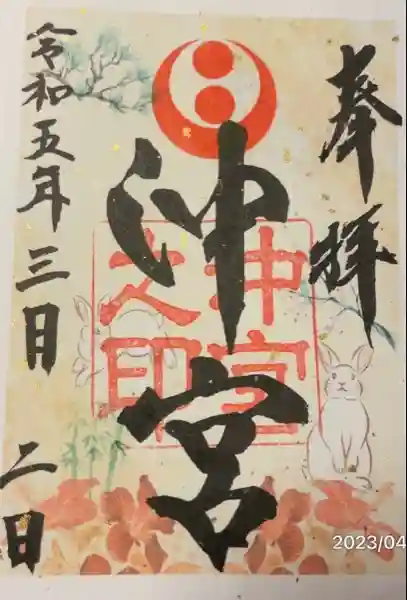 奉拝
沖宮
沖宮
之印
令和五年三日二日
2023/04